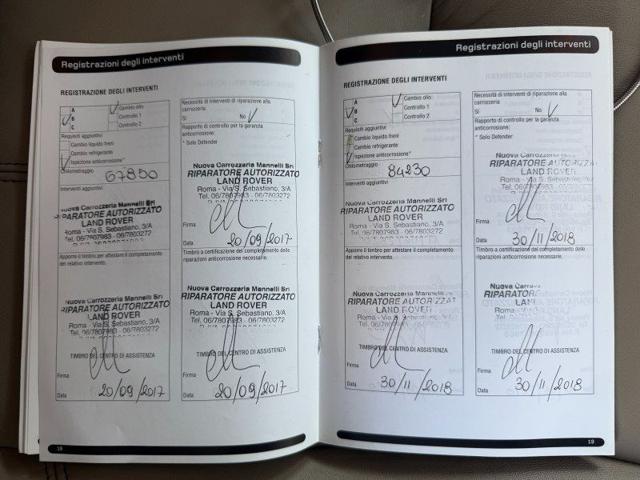 Registrazioni degli interventi
REGISTRAZIONE DEGLI INTERVENTI
A
Cambio olio
B
Controllo 1
C
Controllo 2
Requisiti aggiuntivi
Cambio liquido freni
Cambio refrigerante
Ispezione anticorrosione*
Chilometraggio 67850
Interventi aggiuntivi
Nuova Carrozzeria Mannelli Srl
RIPARATORE AUTORIZZATO
LAND ROVER
Apporre il timbro per attestare il completamento
del relativo intervento.
Nuova Carrozzeria Mannelli Srl
RIPARATORE AUTORIZZATO
LAND ROVER
Roma - Via S. Sebastiano, 3/A
Tel. 06/7807983 - 06/7803272
TIMBRO DEL CENTRO DI ASSISTENZA
Firma
Data 20/09/2017
18
Necessità di interventi di riparazione alla
carrozzeria:
Sì No
Rapporto di controllo per la garanzia
anticorrosione:*
* Solo Defender
Nuova Carrozzeria Mannelli Srl
RIPARATORE AUTORIZZATO
LAND ROVER
Roma - Via S. Sebastiano, 3/A
Tel. 06/7807983 - 06/7803272
Firma
Data 20/09/2017
Timbro a certificazione del completamento delle
riparazioni anticorrosione necessarie.
Nuova Carrozzeria Mannelli Srl
RIPARATORE AUTORIZZATO
LAND ROVER
Roma - Via S. Sebastiano, 3/A
Tel. 06/7807983 - 06/7803272
TIMBRO DEL CENTRO DI ASSISTENZA
Firma
Data 20/09/2017
Registrazioni degli interventi
REGISTRAZIONE DEGLI INTERVENTI
A
Cambio olio
B
Controllo 1
C
Controllo 2
Requisiti aggiuntivi
Cambio liquido freni
Cambio refrigerante
Ispezione anticorrosione*
Chilometraggio 84230
Interventi aggiuntivi
Nuova Carrozzeria Mannelli Srl
RIPARATORE AUTORIZZATO
LAND ROVER
Apporre il timbro per attestare il completamento
del relativo intervento.
Nuova Carrozzeria Mannelli Srl
RIPARATORE AUTORIZZAT
LAND ROVER
Roma - Via S. Sebastiano, 3/A
TIMBRO DEL CENTRO DI ASSISTENZA
Firma
Data 30/11/2018
Necessità di interventi di riparazione alla
carrozzeria:
Sì No
Rapporto di controllo per la garanzia
anticorrosione:*
* Solo Defender
RIPARATORE AUTORIZZAT
LAND ROVER
Firma
Data 30/11/2018
Timbro a certificazione del completamento delle
riparazioni anticorrosione necessarie.
Nuova Carrozzeria
RIPARATOR
LAND
Roma - Via S.
TIMBRO DEL CENTRO DI ASSISTENZA
Firma
Data 30/11/2018
19